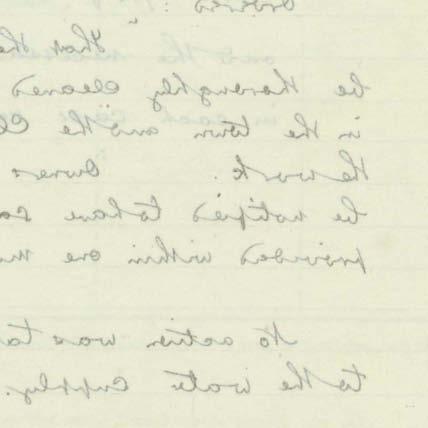 Ordered:
That the
be thoroughly cleaned
in the town and the Cl
the work. Owners
be notified to have sa
provided within one m
No action was ta
to the water supply.